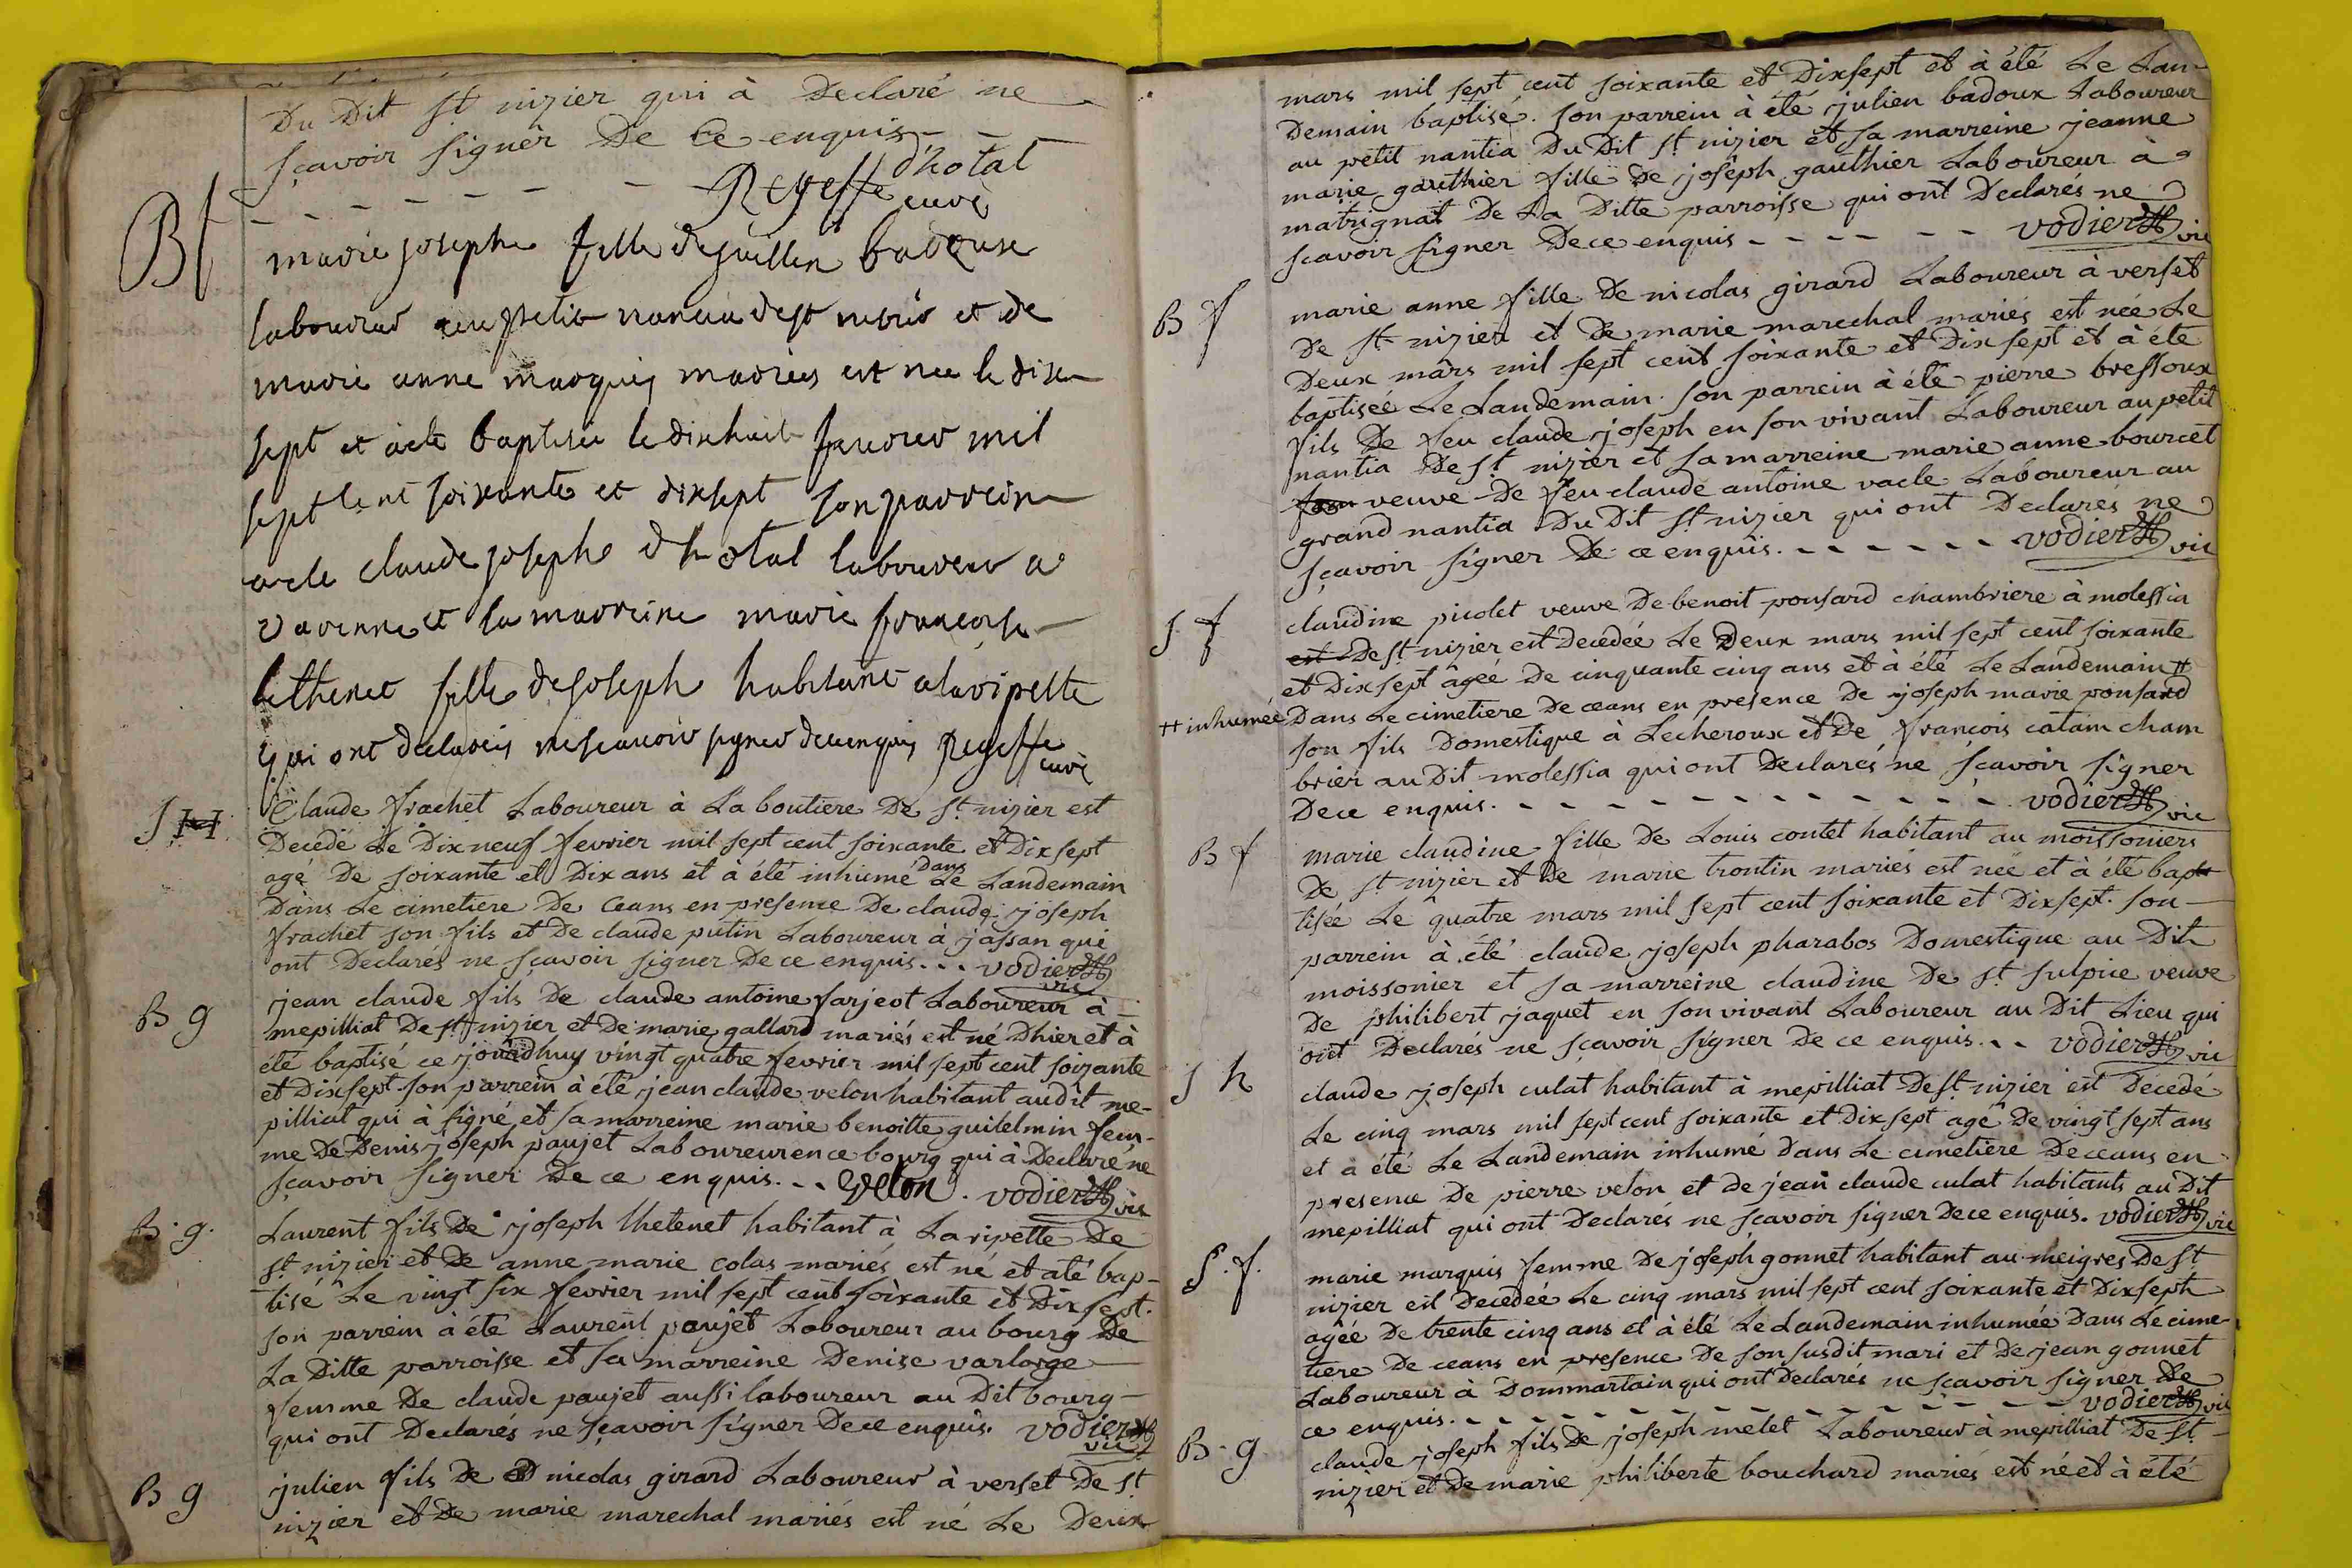 Du Dit St nizier qui à Declaré ne
sçavoir signer De ce enquis - -
- - - - - - Regeffe d'hotal
curé
Bf
marie josephe fille de juillin badoux
laboureur au petit nancia de st nizier et de
marie anne marquis mariés est nee le dix
sept et àeté baptisée le dixhuit fevrier mil
sept cent soixante et dixsept son parrein
aete claude joseph d'hotal laboureur a
varenne et sa marreine marie françoise
lethenet fille de joseph habitant alaripette
qui ont declarés ne scavoir signer dececenquis Regeffe
curé
S H
Claude frachet Laboureur à La boutiere De St nizier est
Decedé Le Dixneuf fevrier mil sept cent soixante et Dixsept
agé De soixante et Dix ans et à été inhumé Dans Le Landemain
Dans Le cimetiere De Ceans en presence De claude joseph
frachet son fils et De claude putin Laboureur à jassan qui
ont Declarés ne sçavoir signer De ce enquis. . . vodier
vic
B g
jean claude fils De claude antoine farjeot Laboureur à -
mepilliat De St nizier et De marie gallard mariés est né Dhier et à
été baptisé ce jourdhuy vingt quatre fevrier mil sept cent soixante
et Dixsept son parrein à été jean claude velon habitant audit me-
pilliat qui à signé et sa marreine marie benoitte guilelmin fem-
me De Denis joseph paujet Laboureur en ce bourg qui à Declaré ne
sçavoir signer De ce enquis. . . velon. vodier vic
B. g.
Laurent fils De joseph lhetenet habitant à La ripette De
St nizier et De anne marie colas mariés est né et a été bap-
tisé Le vingt six fevrier mil sept cent soixante et Dix sept.
son parrein à été Laurent paujet Laboureur au bourg De
La Ditte parroisse et sa marreine Denise varlorge
femme De claude paujet aussi laboureur au Dit bourg -
qui ont Declarés ne sçavoir signer De ce enquis. vodier
vic
B g
julien fils De nicolas girard Laboureur à verset De St
nizier et De marie marechal mariés est né Le Deux
mars mil sept cent soixante et Dixsept et à été Le Lan-
Demain baptisé. son parrein à été julien badoux Laboureur
au petit nantia Du Dit St nizier et sa marreine jeanne
marie gauthier fille De joseph gauthier Laboureur à
matrignat De La Ditte parroisse qui ont Declarés ne
scavoir signer De ce enquis - - - - - - vodier vic
B f
marie anne fille De nicolas girard Laboureur à verset
De St nizier et De marie marechal mariés est née Le
Deux mars mil sept cent soixante et Dixsept et à été
baptisée Le Landemain. son parrein à été pierre bressoux
fils De feu claude joseph en son vivant Laboureur au petit
nantia De St nizier et sa marreine marie anne bourcet
fem veuve De feu claude antoine vacle Laboureur au
grand nantia Du Dit St nizier qui ont Declarés ne
sçavoir signer De ce enquis. - - - - - - - vodier vic
S. f
claudine picolet veuve De benoit ponsard chambriere à molessia
est De St nizier est Decedée Le Deux mars mil sept cent soixante
et Dixsept âgée De cinquante cinq ans et à été Le Landemain ++
++ inhumée Dans Le cimetiere De ceans en presence De joseph marie ponsard
son fils Domestique à Lecheroux et De françois catain cham
brier au Dit molessia qui ont Declarés ne sçavoir signer
De ce enquis. - - - - - - - - - - - - - vodier vic
B f
marie claudine fille De Louis contet habitant au moissoniers
De St nizier et De marie trontin mariés est née et à été bap
tisée Le quatre mars mil sept cent soixante et Dixsept. son -
parrein à été claude joseph pharabos Domestique au Dit
moissonier et sa marreine claudine De St sulpice veuve
De philibert jaquet en son vivant Laboureur au Dit Lieu qui
ont Declarés ne sçavoir signer De ce enquis. . . vodier vic
S h
claude joseph culat habitant à mepilliat De St nizier est Decedé
Le cinq mars mil sept cent soixante et Dix sept agé De vingt sept ans
et à été Le Landemain inhumé Dans Le cimetiere De ceans en
presence De pierre velon et de jean claude culat habitants au Dit
mepilliat qui ont Declarés ne sçavoir signer De ce enquis. vodier vic
S. f.
marie marquis femme De joseph gonnet habitant au meigres De St
nizier est Decedée Le cinq mars mil sept cent soixante et Dixsept
agée De trente cinq ans et à été Le Landemain inhumée Dans Le cime-
tiere De ceans en presence De son susdit mari et De jean gonnet
Laboureur à Dommartain qui ont Declarés ne sçavoir signer De
ce enquis. - - - - - - - - - - - - - - vodier vic
B. g
claude joseph fils De joseph metet Laboureur à mepilliat De St -
nizier et De marie philiberte bouchard mariés est né et à été